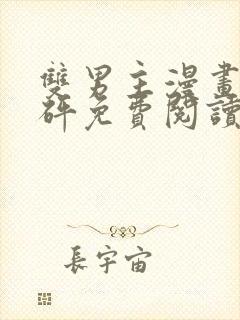 雙男主漫畫
砰免費閱讀
長宇宙